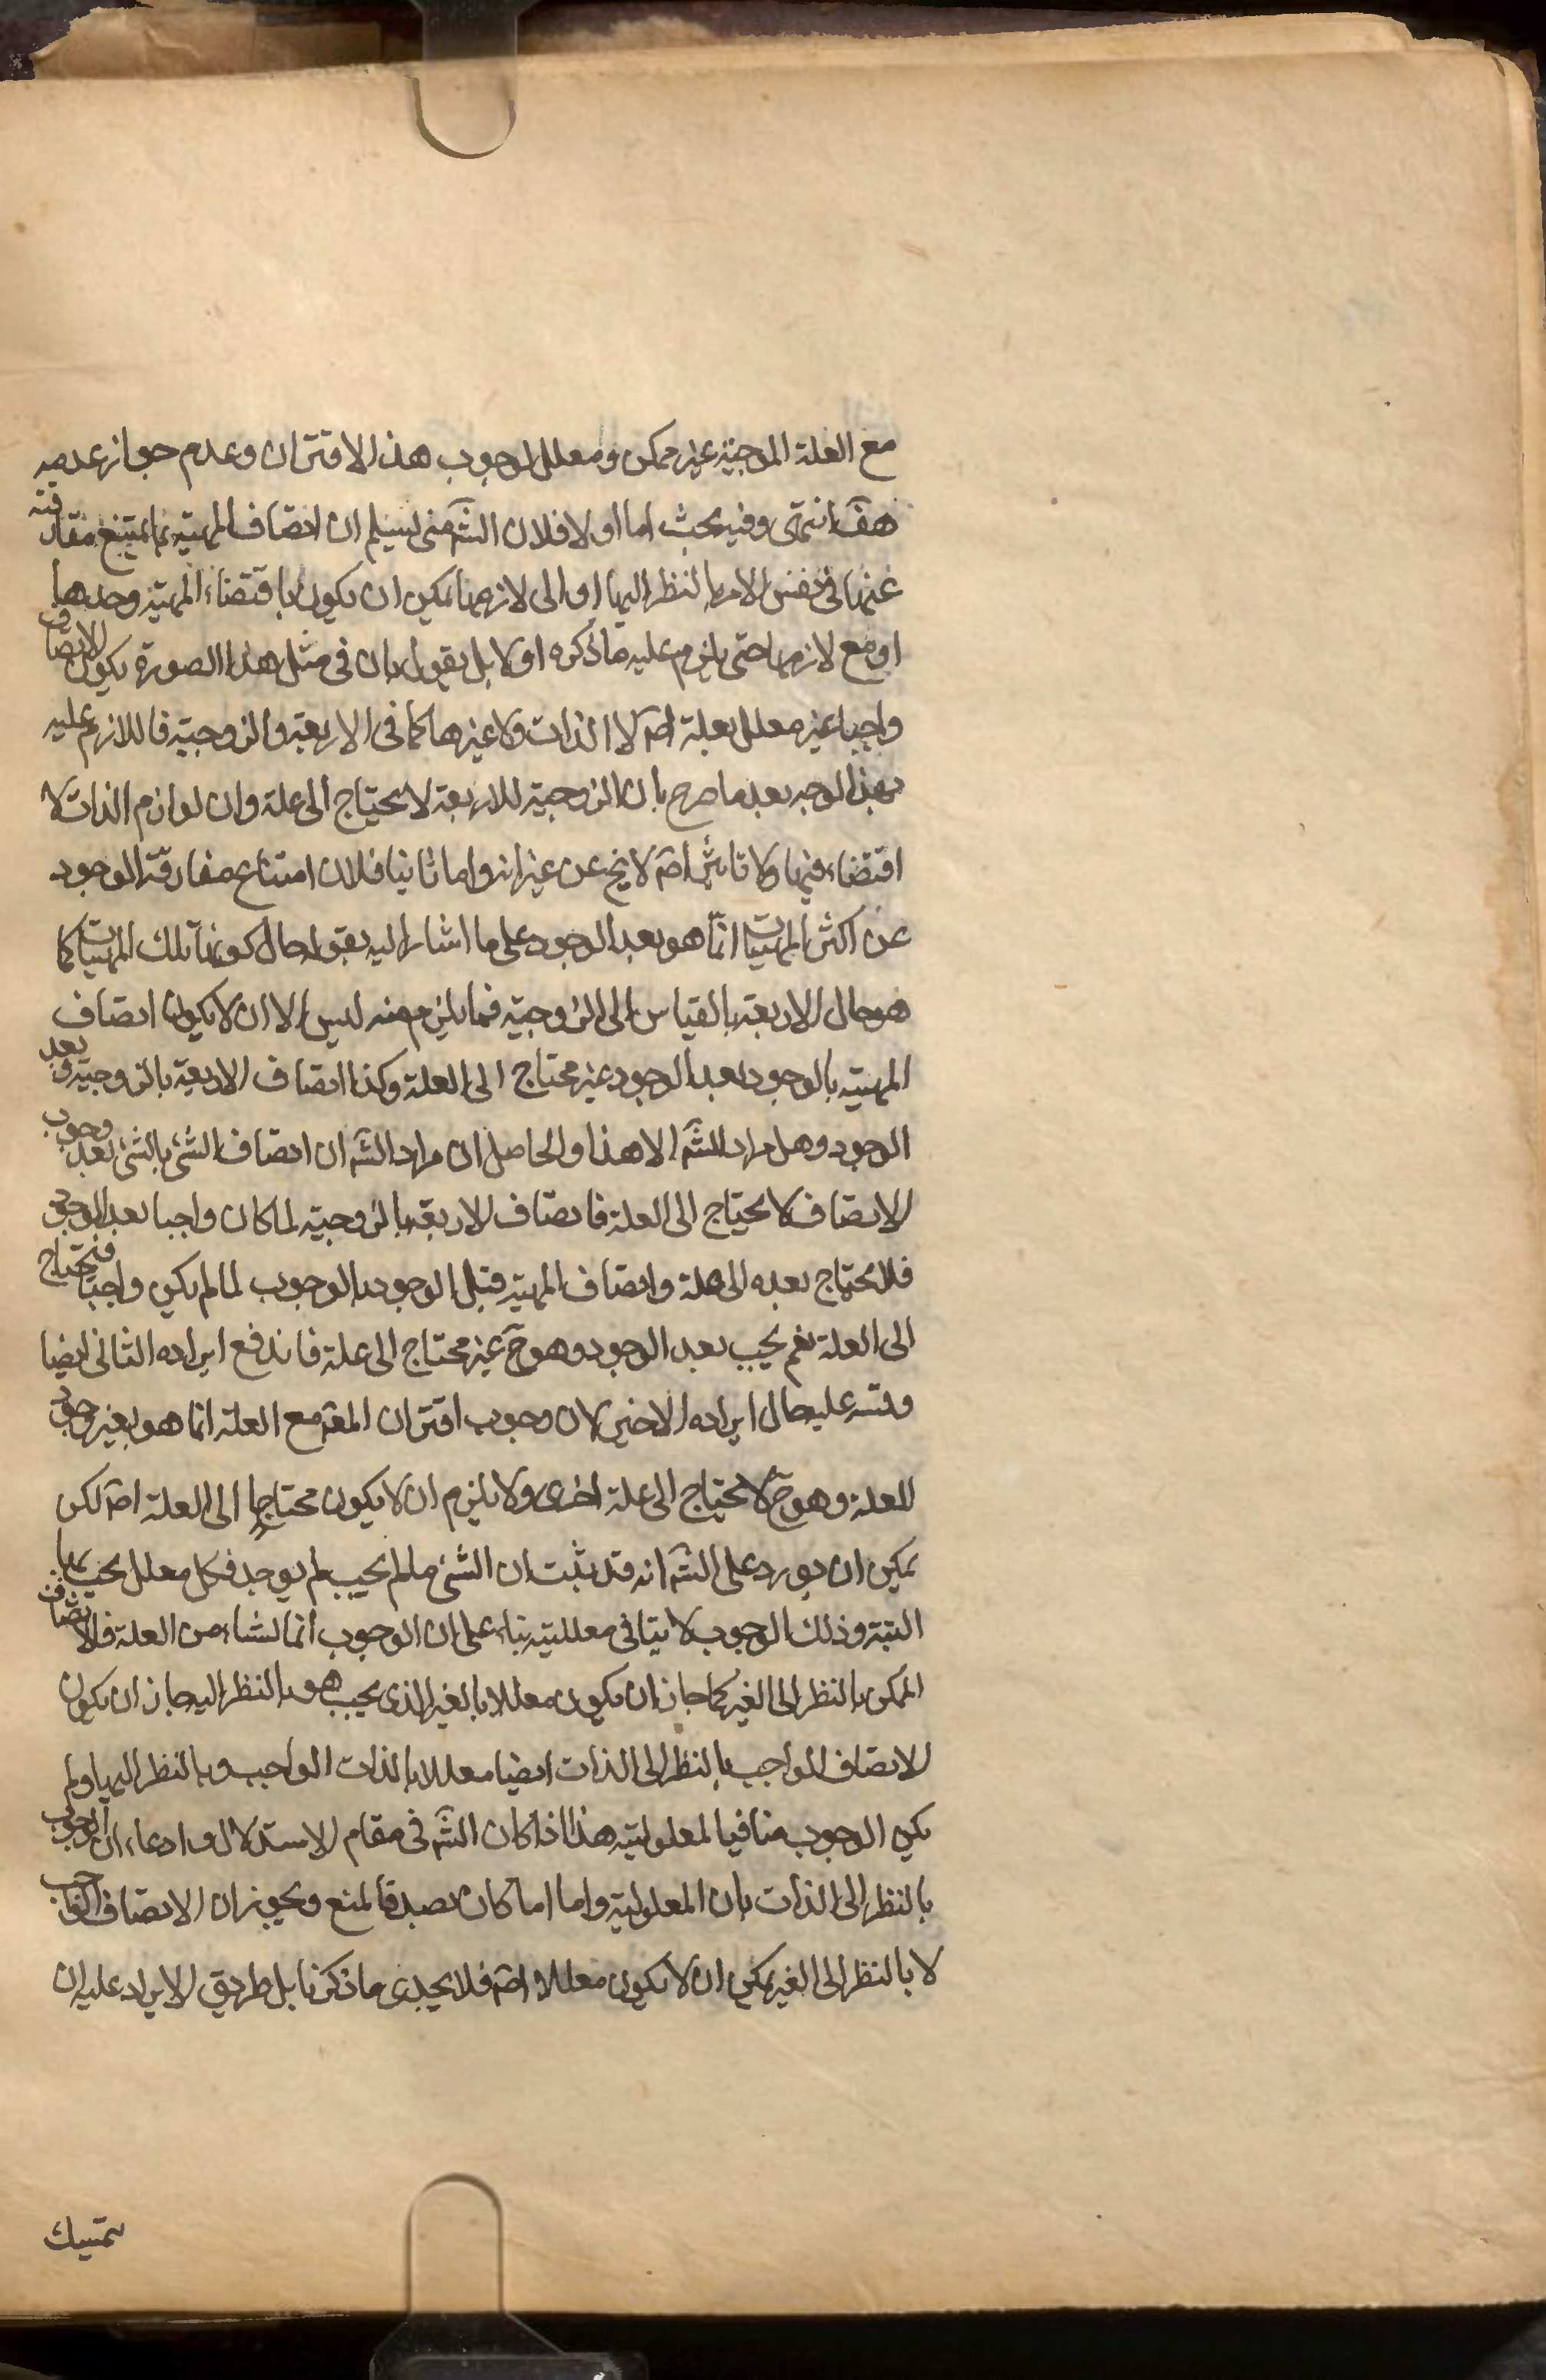 مع العلة الموجبة غير ممكن ومعلل لوجوب هذا الاقتران وعدم جواز عدمه
هف انتهى وفيه بحث اما اولا فلان الشه منى ليسلم ان اتصاف المهية بما يمتنع مفارقته
عنها فى نفس الامر بالنظر اليها او الى لازمها يمكن ان يكون باقتضاء المهية وحدها
او مع لازمها حتى يلزم عليه ما ذكره او لا بل يقول بان فى مثل هذا الصورة يكون الاتصاف
واجبا غير معلل بعلة اصه لا الذات ولا غيرها كما فى الاربعة والزوجية فاللازم عليه
بهذا الوجه بعد ما صرح بان الزوجية للاربعة لا يحتاج الى علة وان لوازم الذات لا
اقتضاء فيها ولا تاثير اصه لا يخ عن غرابة واما ثانيا فلان امتناع مفارقة الوجود
عن اكثر المهيات انما هو بعد الوجود على ما اشار اليه بقوله حال كونها تلك المهيات كما
هو حال الاربعة بالقياس الى الزوجية فما يلزم منه ليس الا ان لا يكون اتصاف
المهية بالوجود بعد الوجود غير محتاج الى العلة وكذا اتصاف الاربعة بالزوجية بعد
الوجود وهل مراد الشه الا هذا والحاصل ان مراد الشه ان اتصاف الشئ بالشئ بعد وجوب
الاتصاف لا يحتاج الى العلة فاتصاف الاربعة بالزوجية لما كان واجبا بعد الوجود
فلا يحتاج بعده الى علة واتصاف المهية قبل الوجود بالوجوب لما لم يكن واجبا فتحتاج
الى العلة نعم يجب بعد الوجود وهو ح غير محتاج الى علة فاندفع ايراده الثانى ايضا
وقس عليه حال ايراده الاخير لان وجوب اقتران المعه مع العلة انما هو بغير وجود
للعلة وهو ح لا يحتاج الى علة اخرى ولا يلزم ان لا يكون محتاجا الى العلة اصه لكن
يمكن ان يورد على الشه انه قد ثبت ان الشئ ما لم يجب لم يوجد فكل معلل يجب
البتة وذلك الوجوب لا ينافى معلليته بناء على ان الوجوب انما نشاء من العلة فالاتصاف
الممكن بالنظر الى الغير كما جاز ان يكون معللا بالغير الذى يجب هو بالنظر اليه جاز ان يكون
الاتصاف الواجب بالنظر الى الذات ايضا معللا بالذات الواجب وبالنظر اليها ولم
يكن الوجوب منافيا لمعلوليته هذا اذا كان الشه فى مقام الاستدلال وادعاء ان الوجوب
بالنظر الى الذات بان المعلولية واما اما كان بصدد المنع وتجويز ان الاتصاف الواجب
لا بالنظر الى الغير يمكن ان لا يكون معللا اصه فلا يجدى ما ذكرنا بل طريق الايراد عليه ان